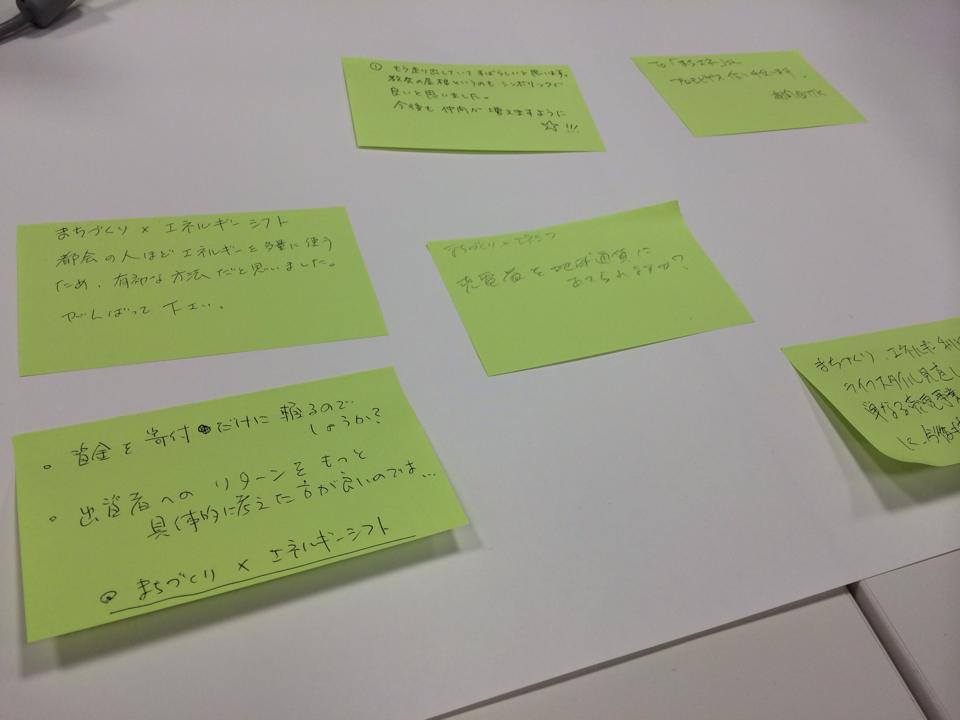 ① もう走り出していてすばらしいと思います。
教会の屋根というのもシンボリックで
良いと思いました。
今後も仲間が増えますように
☆!!!
To「まちエネ」
まちづくり × エネルギーシフト
都会の人ほどエネルギーを多量に使う
ため、有効な方法だと思いました。
がんばって下さい。
まちづくり × エネシフ
売電益を地域通貨に
あてられますか?
まちづくり エネルギー
ライフスタイル見直し
単なる売電事業
に
。資金を寄付だけに頼るので
しょうか?
。出資者へのリターンをもっと
具体的に考えた方が良いのでは...
◎ まちづくり × エネルギーシフト